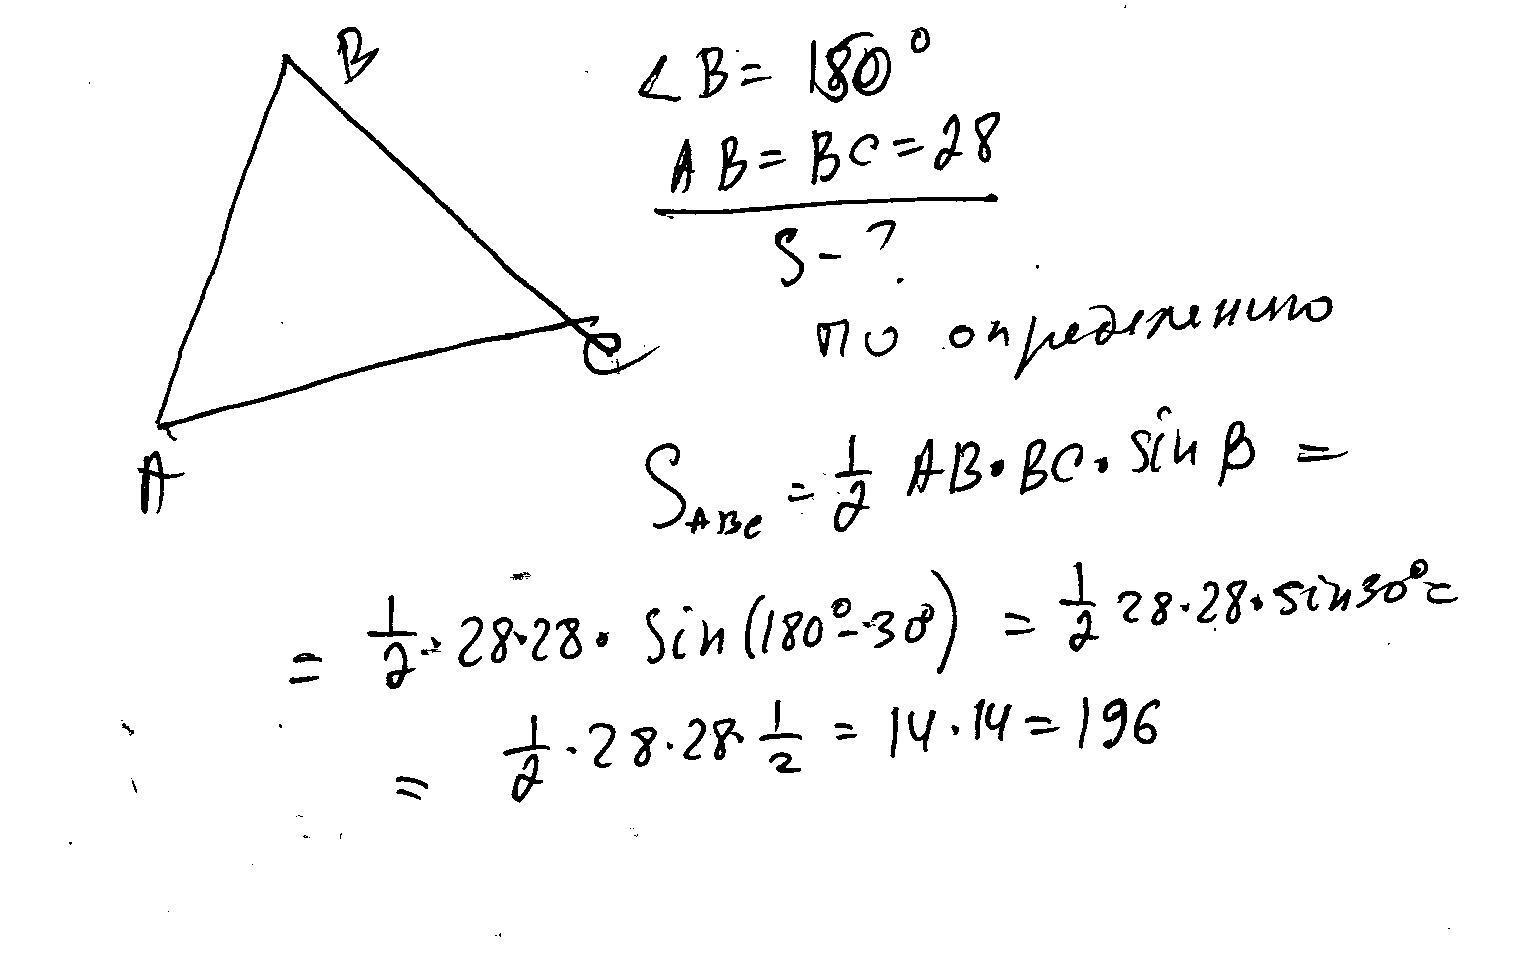 B
∠B = 150°
AB = BC = 28
S - ?
по определению
C
A
S_ABC = 1/2 AB · BC · sin B =
= 1/2 · 28 · 28 · sin(180° - 30°) = 1/2 28 · 28 · sin 30° =
= 1/2 · 28 · 28 · 1/2 = 14 · 14 = 196